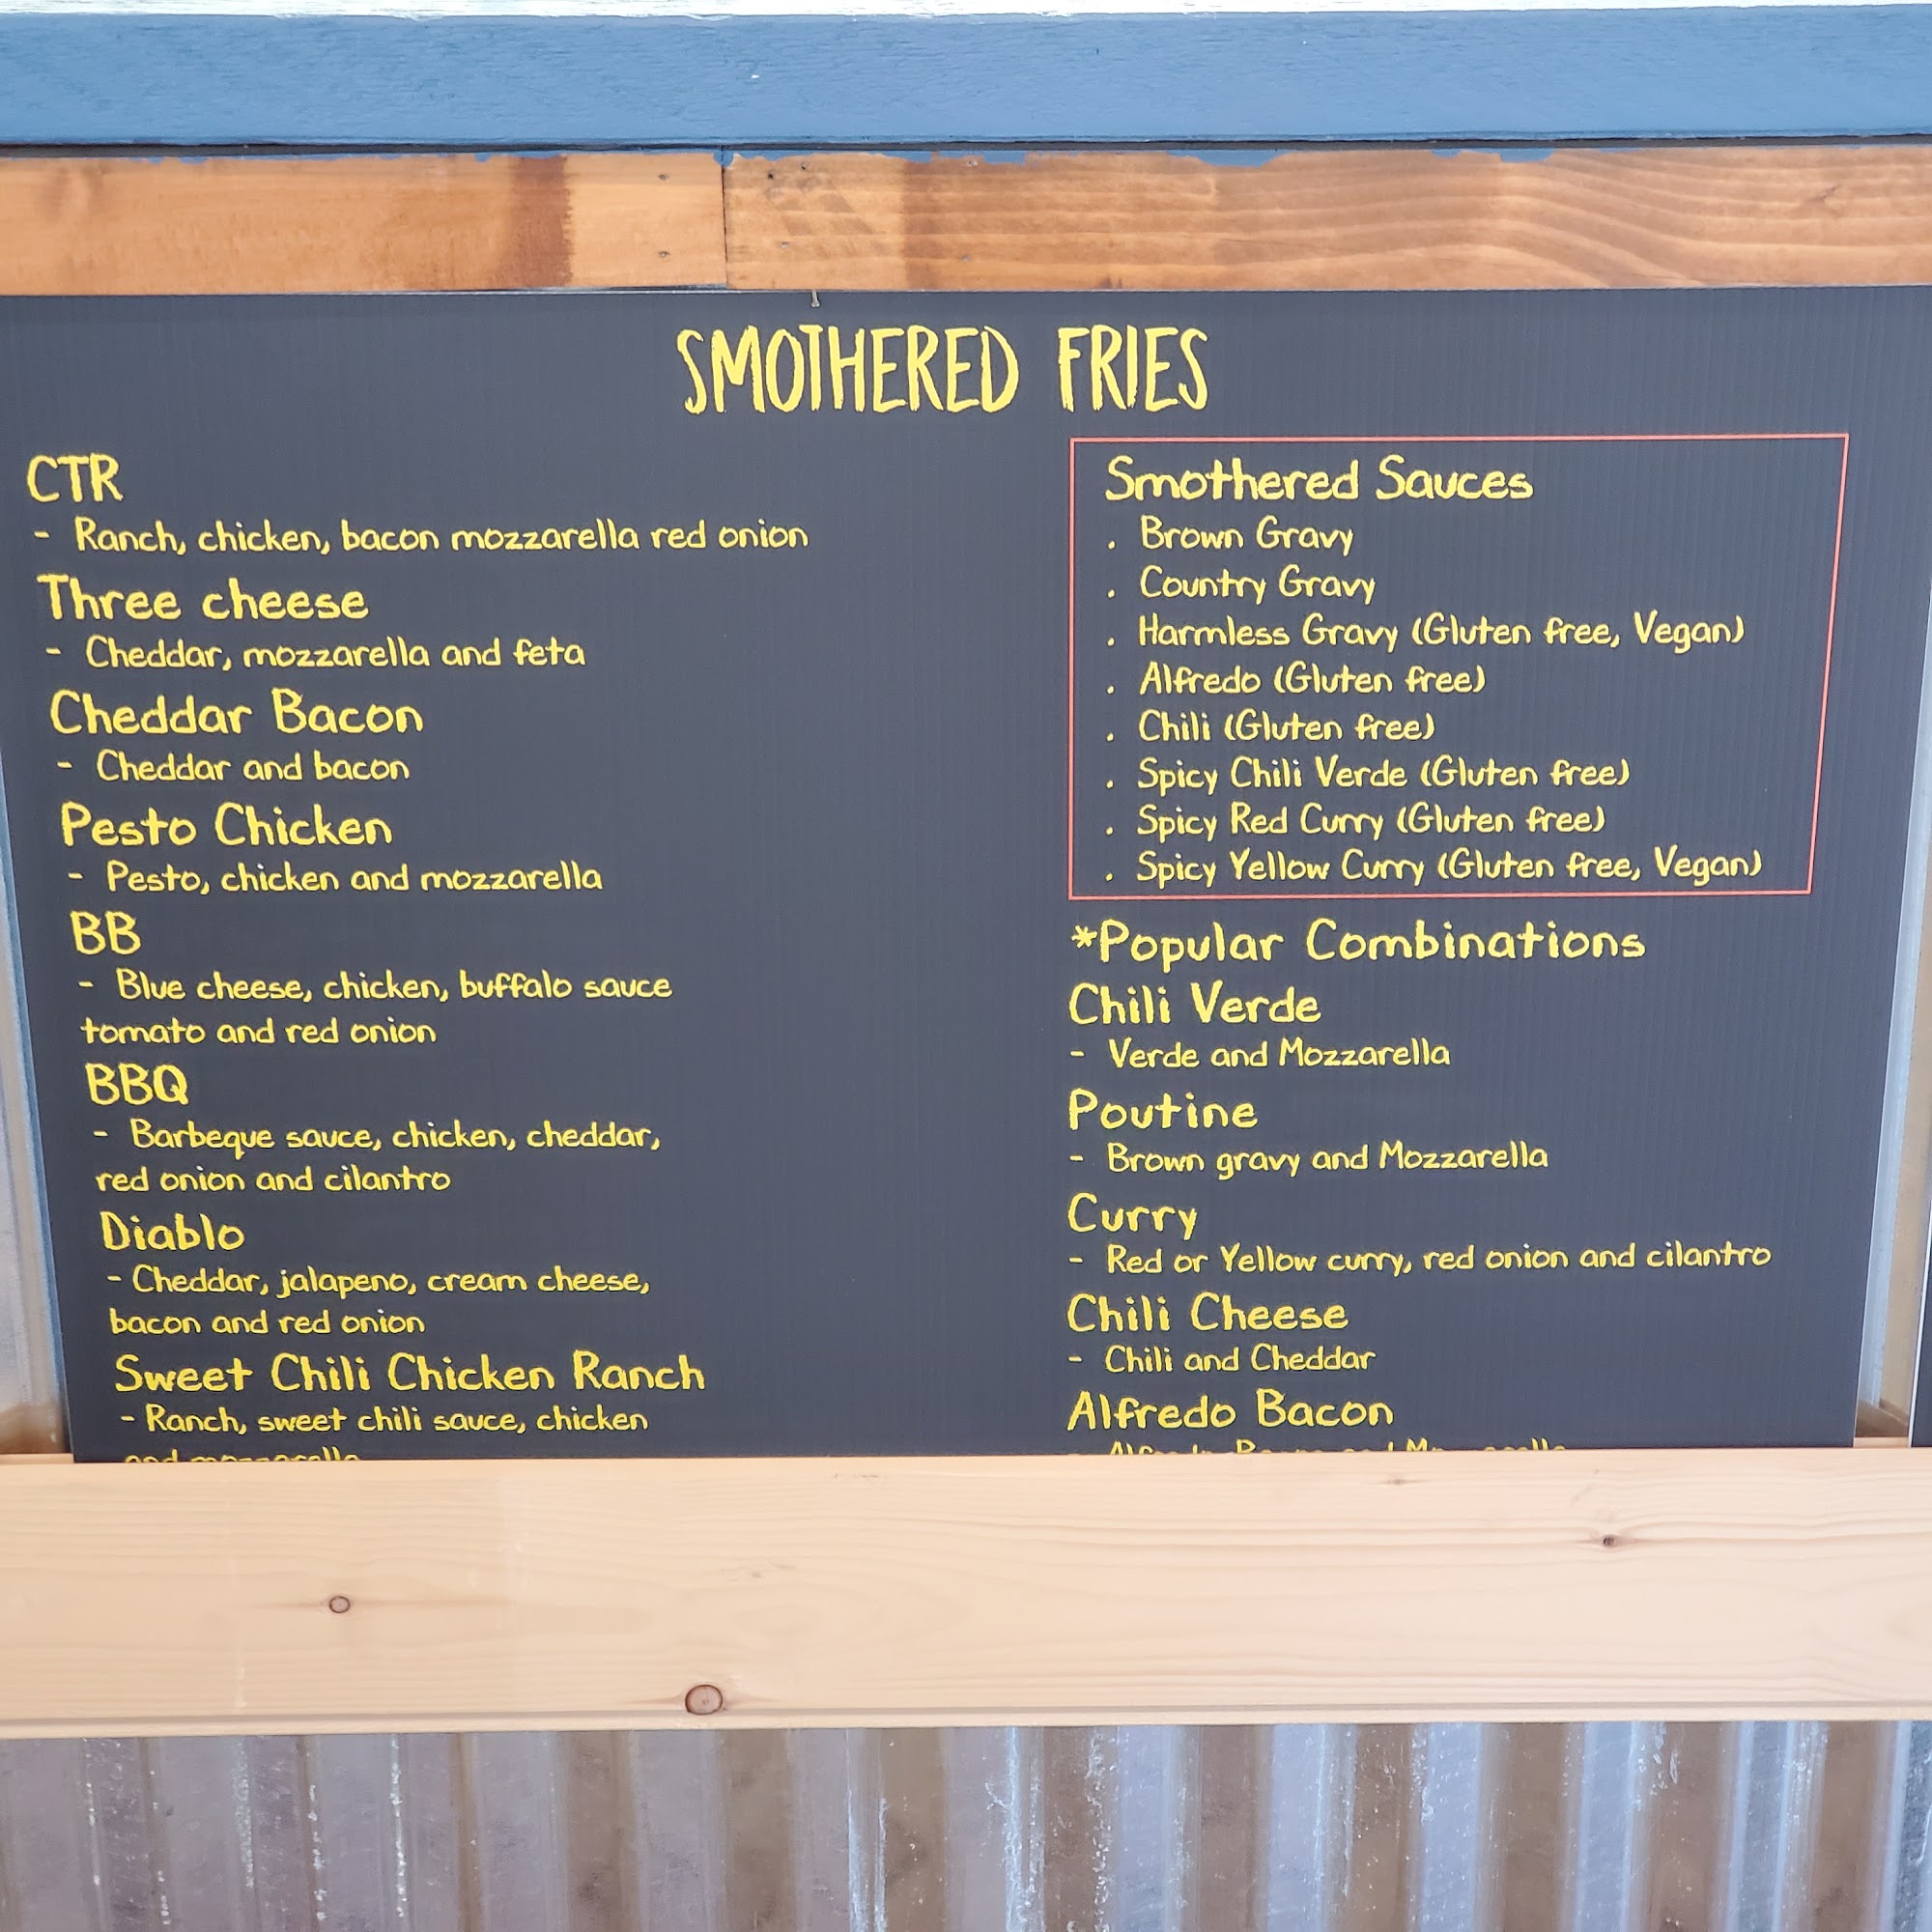 SMOTHERED FRIES
CTR
- Ranch, chicken, bacon mozzarella red onion
Three cheese
- Cheddar, mozzarella and feta
Cheddar Bacon
- Cheddar and bacon
Pesto Chicken
- Pesto, chicken and mozzarella
BB
- Blue cheese, chicken, buffalo sauce
tomato and red onion
BBQ
- Barbeque sauce, chicken, cheddar,
red onion and cilantro
Diablo
- Cheddar, jalapeno, cream cheese,
bacon and red onion
Sweet Chili Chicken Ranch
- Ranch, sweet chili sauce, chicken
and mozzarella
Smothered Sauces
. Brown Gravy
. Country Gravy
. Harmless Gravy (Gluten free, Vegan)
. Alfredo (Gluten free)
. Chili (Gluten free)
. Spicy Chili Verde (Gluten free)
. Spicy Red Curry (Gluten free)
. Spicy Yellow Curry (Gluten free, Vegan)
*Popular Combinations
Chili Verde
- Verde and Mozzarella
Poutine
- Brown gravy and Mozzarella
Curry
- Red or Yellow curry, red onion and cilantro
Chili Cheese
- Chili and Cheddar
Alfredo Bacon
- Alfredo, Bacon and Mozzarella